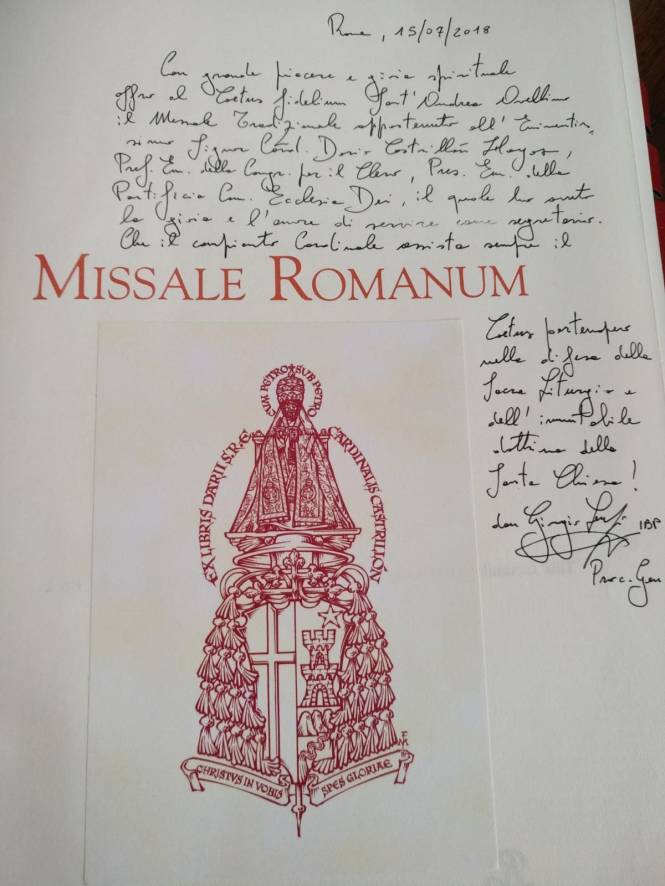 Roma, 15/07/2018
Con grande piacere e gioia spirituale
offro al Coetus fidelium Sant'Andrea Avellino
il Messale Tradizionale appartenuto all'Eminentis-
simo Signor Card. Dario Castrillón Hoyos,
Pref. Em. della Congr. per il Clero, Pres. Em. della
Pontificia Com. Ecclesia Dei, il quale ho avuto
la gioia e l'onore di servire come segretario.
Che il compianto Cardinale assista sempre il
MISSALE ROMANUM
Coetus partenopeo
nella difesa della
Sacra Liturgia e
dell'immutabile
dottrina della
Santa Chiesa!
don Giorgio IBP
Proc. Gen
CUM PETRO SUB PETRO
EX LIBRIS DARII S.R.E. CARDINALIS CASTRILLÓN
CHRISTVS IN VOBIS
SPES GLORIAE